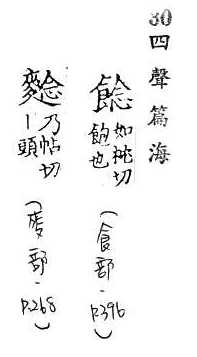 30四聲篇海
切
飽也
(食部·P.396)
乃帖切
丨頭
(麥部·P.268)